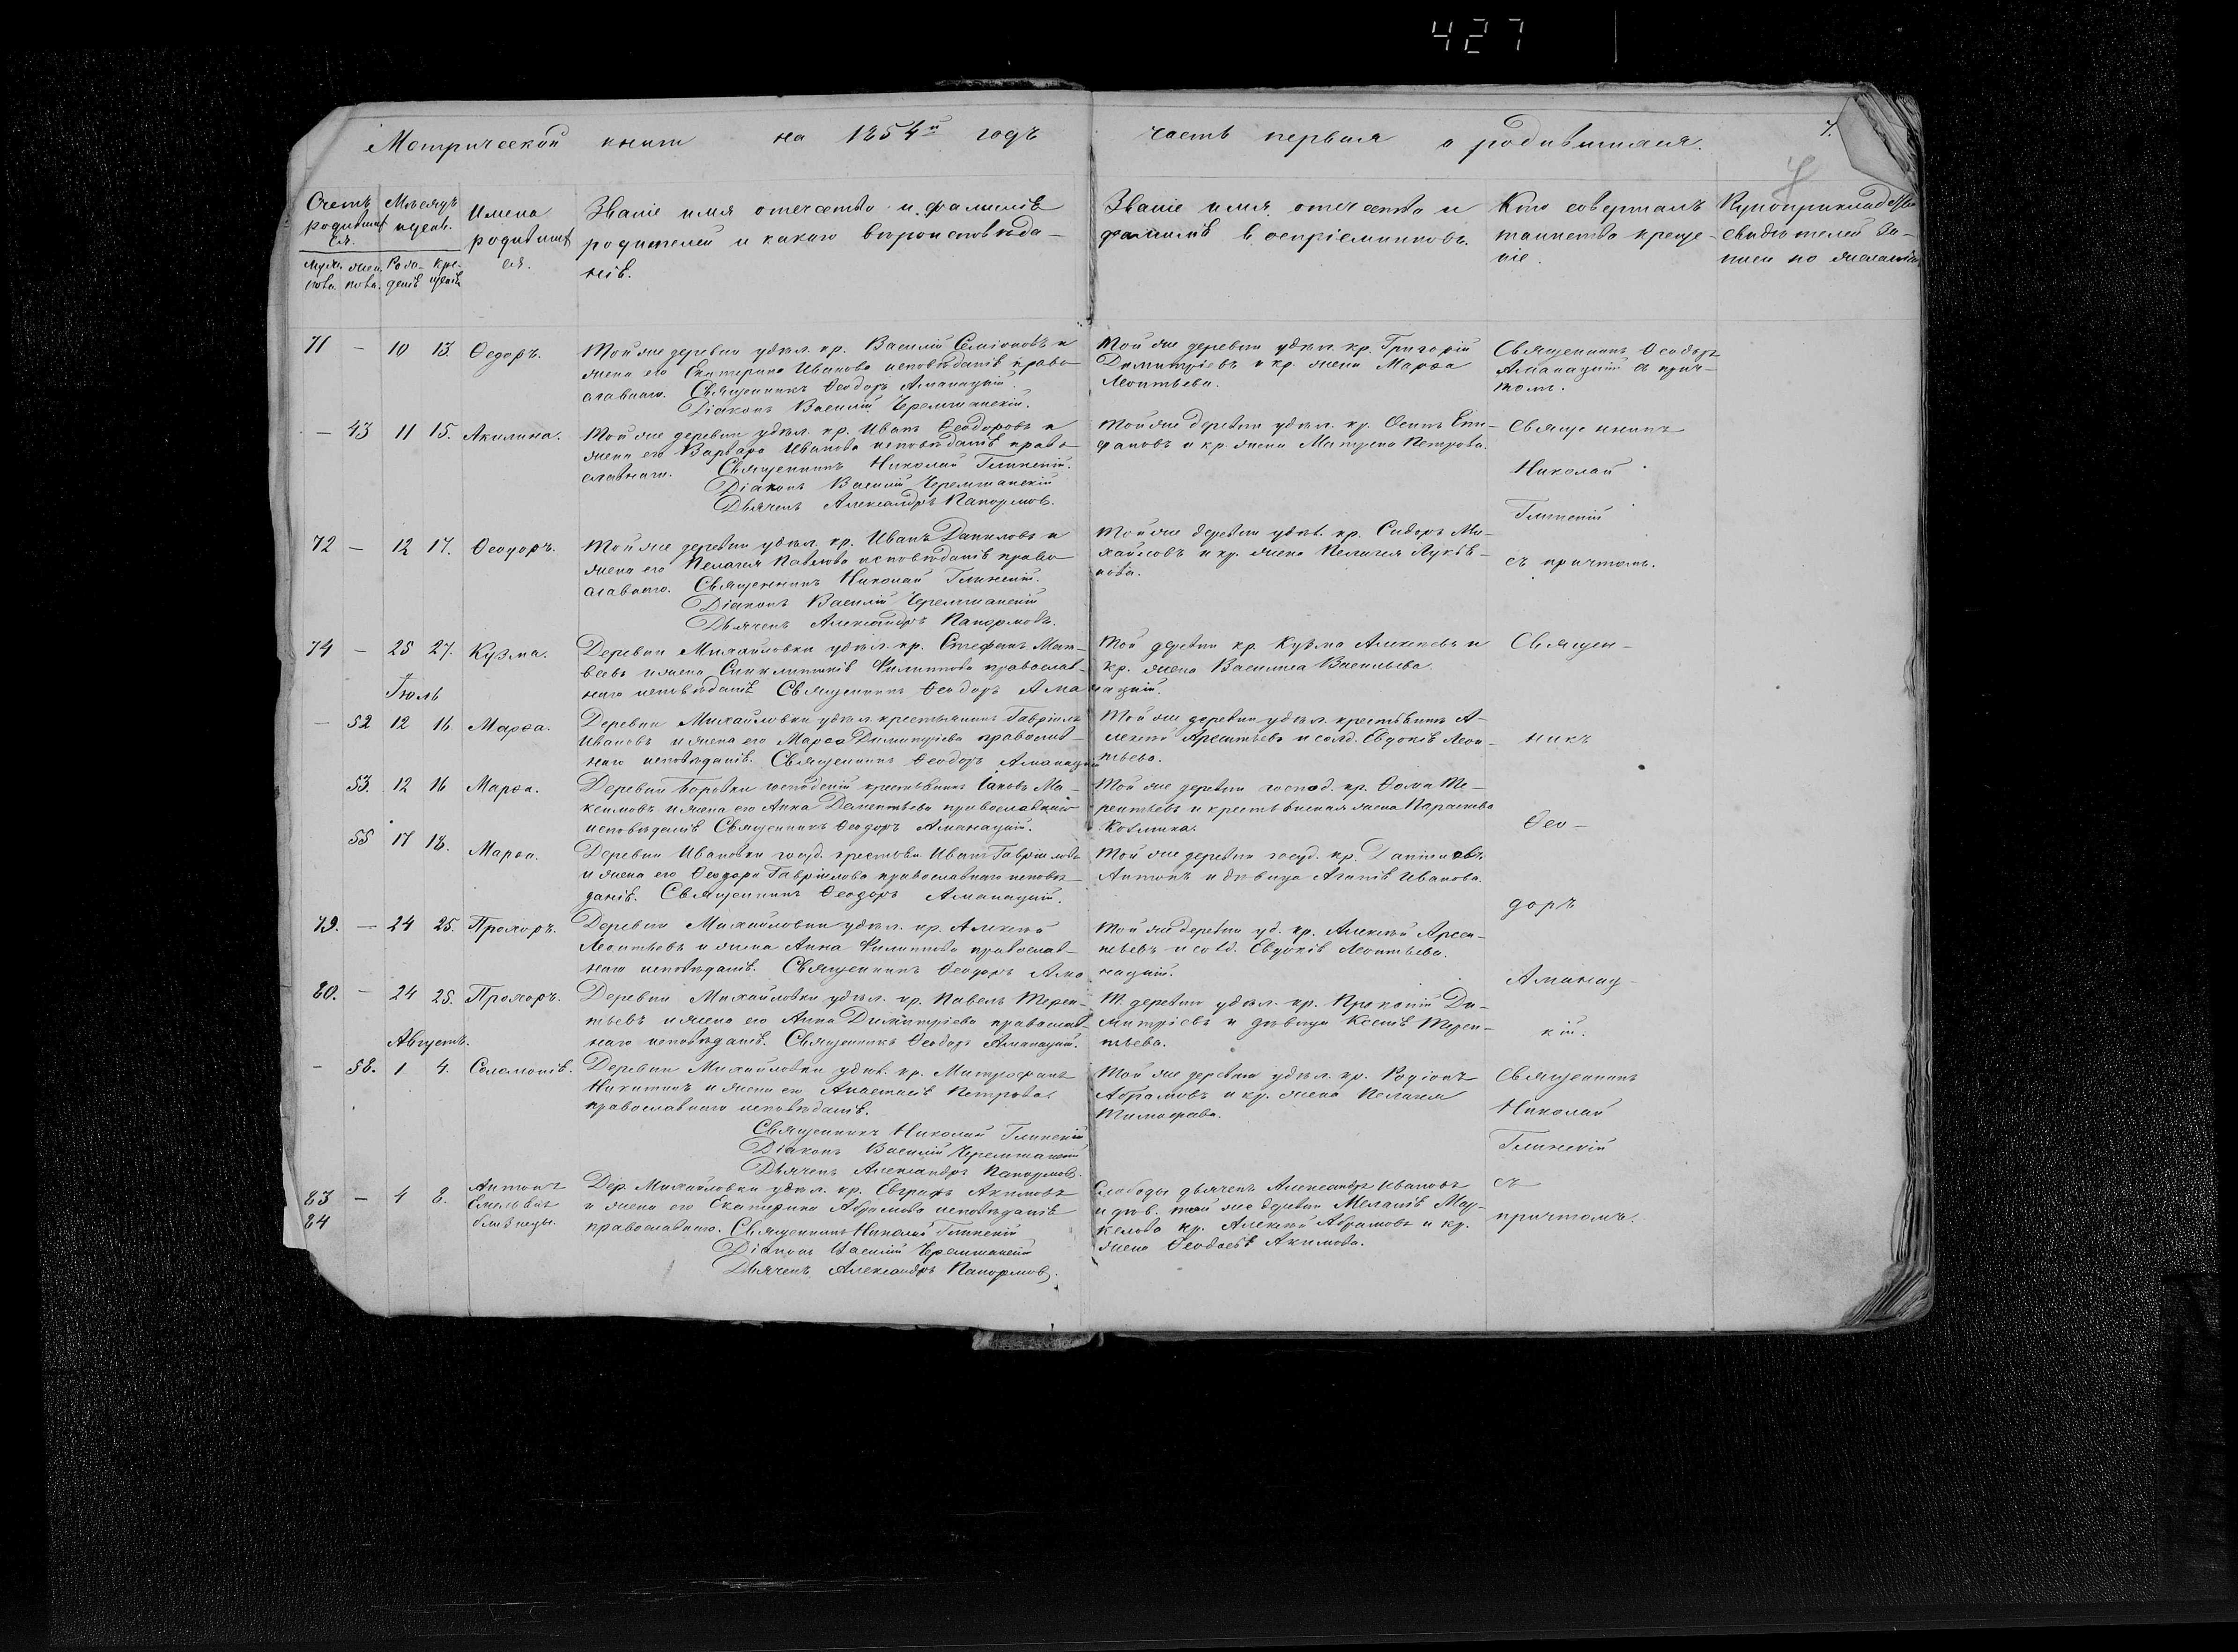 427
Метрической книги на 1854й годъ часть первая о родившихся.
7.
Счетъ родившихся.
Мѣсяцъ и день.
Имена родившихся.
Званіе имя отечество и фамилія
родителей и какого вѣроисповѣда-
нія.
Званіе имя, отечество и
фамилія воспріемниковъ.
Кто совершалъ
таинство креще-
ніе.
Рукоприкладство
свидѣтелей за-
писи по желанію
муж. пола. жен. пола. Рож- денія кре- щенія
71 — 10 13. Ѳедоръ.
Той же деревни удѣл. кр. Василій Семіоновъ и
жена его Екатерина Иванова исповѣданія право
славнаго. Священникъ Ѳеодоръ Аманацкій.
Діаконъ Василій Черемшанскій.
Той же деревни удѣл. кр. Григорій
Димитріевъ и кр. жена Марѳа
Леонтьева.
Священникъ Ѳеодоръ
Аманацкій съ прич-
томъ.
— 43 11 15. Акилина.
Той же деревни удѣл. кр. Иванъ Ѳеодоровъ и
жена его Варвара Иванова исповѣданія право
славнаго. Священникъ Николай Глинскій.
Діаконъ Василій Черемшанскій
Дьячекъ Александръ
Той же деревни удѣл. кр. Осипъ Епи-
фановъ и кр. жена Матрена Петрова.
Священникъ
Николай
Глинскій
съ причтомъ.
72 — 12 17. Ѳеодоръ.
Той же деревни удѣл. кр. Иванъ Даниловъ и
жена его Пелагея Павлова исповѣданія право
славнаго. Священникъ Николай Глинскій.
Діаконъ Василій Черемшанскій
Дьячекъ Александръ
Той же деревни удѣл. кр. Сидоръ Ми-
хайловъ и кр. жена Пелагея Лукья-
нова.
74 — 25 27. Кузма.
Деревни Михайловки удѣл. кр. Стефанъ Мат-
вѣевъ и жена Синклитикія Филиппова православ-
наго исповѣданія Священникъ Ѳеодоръ Аманацкій.
Той деревни кр. Кузма Алексѣевъ и
кр. жена Василиса Васильева.
Священ-
Іюль
— 52 12 16 Марѳа.
Деревни Михайловки удѣл. крестьянинъ Гавріилъ
Ивановъ и жена его Марѳа Димитріева православ-
наго исповѣданія. Священникъ Ѳеодоръ Аманацкій
Той же деревни удѣл. крестьянинъ А-
лексѣй Арсентьевъ и солд. Евдокія Леон-
тьева.
никъ
53. 12 16 Марѳа.
Деревни Боровки господскій крестьянинъ Іаковъ Ма-
ксимовъ и жена его Анна Дементьева православнаго
исповѣданія Священникъ Ѳеодоръ Аманацкій.
Той же деревни господ. кр. Ѳома Те-
рентьевъ и крестьянская жена Параскева
Козмина.
Ѳео-
55 17 18. Марѳа.
Деревни Ивановки госуд. крестьян. Иванъ Гавріиловъ
и жена его Ѳеодора Гавріилова православнаго исповѣ-
данія. Священникъ Ѳеодоръ Аманацкій.
Той же деревни госуд. кр. Даниловъ
Антонъ и дѣвица Агапія Иванова.
доръ
79. — 24 25. Прохоръ.
Деревни Михайловки удѣл. кр. Алексѣй
Леонтьевъ и жена Анна Филиппова православ-
наго исповѣданія. Священникъ Ѳеодоръ Аманацкій.
Той же деревни уд. кр. Алексѣй Арсен-
тьевъ и солд. Евдокія Леонтьева.
Аманац-
80. — 24 25. Прохоръ.
Деревни Михайловки удѣл. кр. Павелъ Терен-
тьевъ и жена его Анна Димитріева православ-
наго исповѣданія. Священникъ Ѳеодоръ Аманацкій.
Т. деревни удѣл. кр. Прокопій Ди-
митріевъ и дѣвица Ксенія Терен-
тьева.
кій.
Августъ.
— 58. 1 4. Соломонія.
Деревни Михайловки удѣл. кр. Митрофанъ
Никитинъ и жена его Анастасія Петрова
православнаго исповѣданія.
Священникъ Николай Глинскій
Діаконъ Василій Черемшанскій
Дьячекъ Александръ
Той же деревни удѣл. кр. Родіонъ
Абрамовъ и кр. жена Пелагея
Тимофѣева.
Священникъ
Николай
Глинскій
съ
причтомъ.
83 — 4 8. Антонъ
84 близнецы.
Дер. Михайловки удѣл. кр. Евграфъ Акимовъ
и жена его Екатерина Абрамова исповѣданія
православнаго. Священникъ Николай Глинскій
Діаконъ Василій Черемшанскій
Дьячекъ Александръ
Слободы дьячекъ Александръ Ивановъ
и дѣв. той же деревни Меланія Мар-
келова кр. Алексѣй Абрамовъ и кр.
жена Ѳеодосія Акимова.